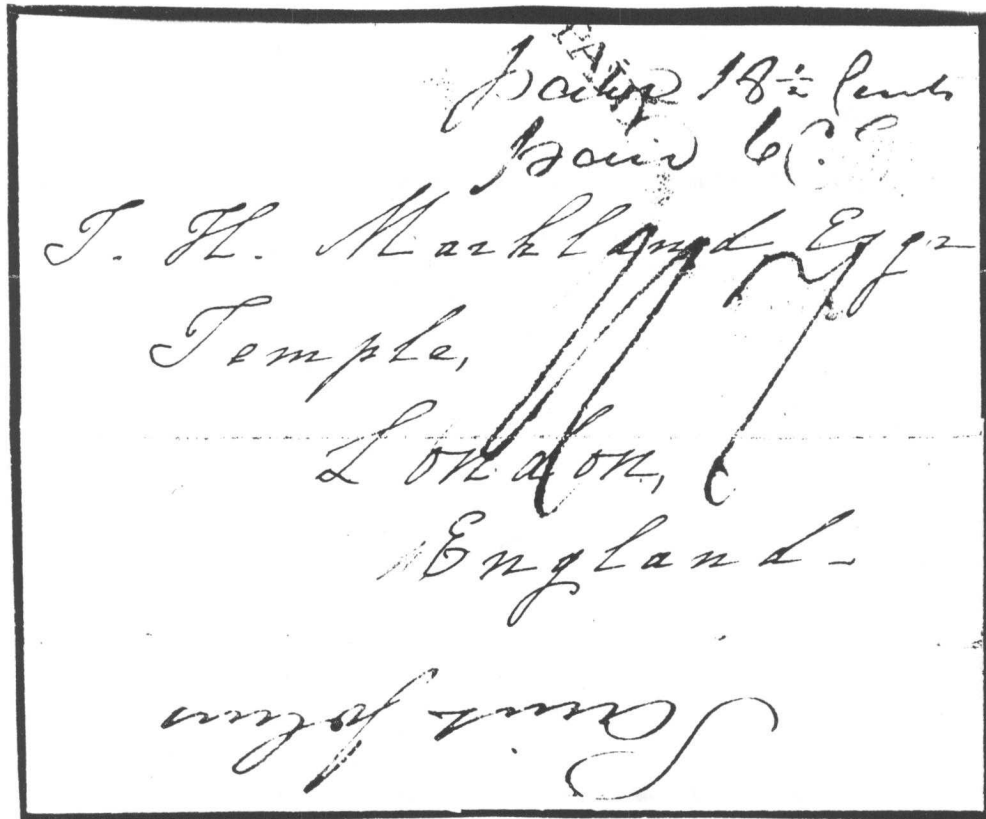 PAID
paid 18½ Cents
paid 6
T. H. Markland Esqr
Temple,
London,
England-
Saint Johns